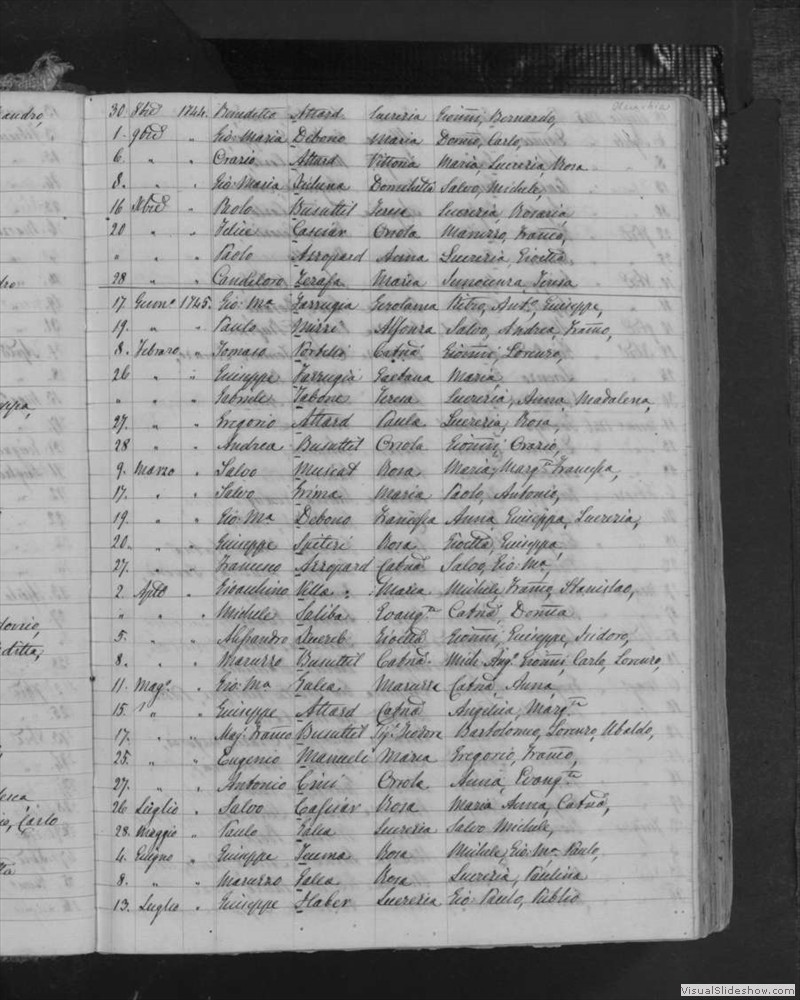 andro,
30. 8bre 1744. Benedetto Attard Lucrezia Gionni, Bernardo,
1. 9bre " Gio: Maria Debono Maria Domca, Carlo,
6. " " Orazio Attard Vittoria Maria, Lucrezia, Rosa
8. " " Gio: Maria Domitilla Salvo, Michele,
16 Xbre " Paolo Busuttil Teresa Lucrezia, Rosaria
20 " " Felice Cassar Orsola Maruzzo, Franco,
" " " Paolo Azzopard Anna Lucrezia, Gioetta,
28 " " Candiloro Zerafa Maria Teresa
17. Genno. 1745. Gio: Ma Farrugia Gerolama Pietro, Anto. Giuseppe,
19. " " Paulo Alfonza Salvo, Andrea, Franco,
8. Febraro " Tomaso Portelli Catna Gionni, Lorenzo,
26 " " Giuseppe Farrugia Gaetana Maria,
" " " Gabriele Tabone Teresa Lucrezia, Anna, Madalena,
27. " " Gregorio Attard Paula Lucrezia, Rosa,
28 " " Andrea Busuttil Orsola Gionni, Orazio,
9. Marzo " Salvo Muscat Rosa Maria, Margta Francesca,
17. " " Salvo Grima Maria Paolo, Antonio,
19. " " Gio: Ma Debono Francesca Anna, Giuseppa, Lucrezia,
20. " " Giuseppe Spiteri Rosa Gioetta, Giuseppa,
27. " " Francesco Azzopard Catna Salvo, Gio: Ma,
2. Aple " Gioachino Vella " Maria Michele, Franco, Stanislao,
" " " Michele Saliba Evangta Catna, Domca
5. " " Alessandro Gioetta Gionni, Giuseppe, Isidoro,
8. " " Maruzzo Busuttil Catna. Mich: Ango. Gionni, Carlo, Lorenzo,
11. Mago. " Gio: Ma Galea Maruzza Catna, Anna,
15. " " Giuseppe Attard Catna Angelica, Margta
17. " " Mag: Franco Busuttil Sig: Teodora Bartolomeo, Lorenzo, Ubaldo,
25. " " Eugenio Manueli Maria Gregorio, Franco,
27. " " Antonio Cini Orsola Anna, Evangta
26 Luglio " Salvo Cassar Rosa Maria Anna, Catna,
28. Maggio " Paulo Galea Lucrezia Salvo Michele,
4. Giugno " Giuseppe Teuma Rosa Michele, Gio: Ma, Paulo,
8. " " Maruzzo Galea Rosa Lucrezia, Paulina
13. Luglio " Giuseppe Haber Lucrezia Gio: Paulo, Publio
Carlo
VisualSlideshow.com